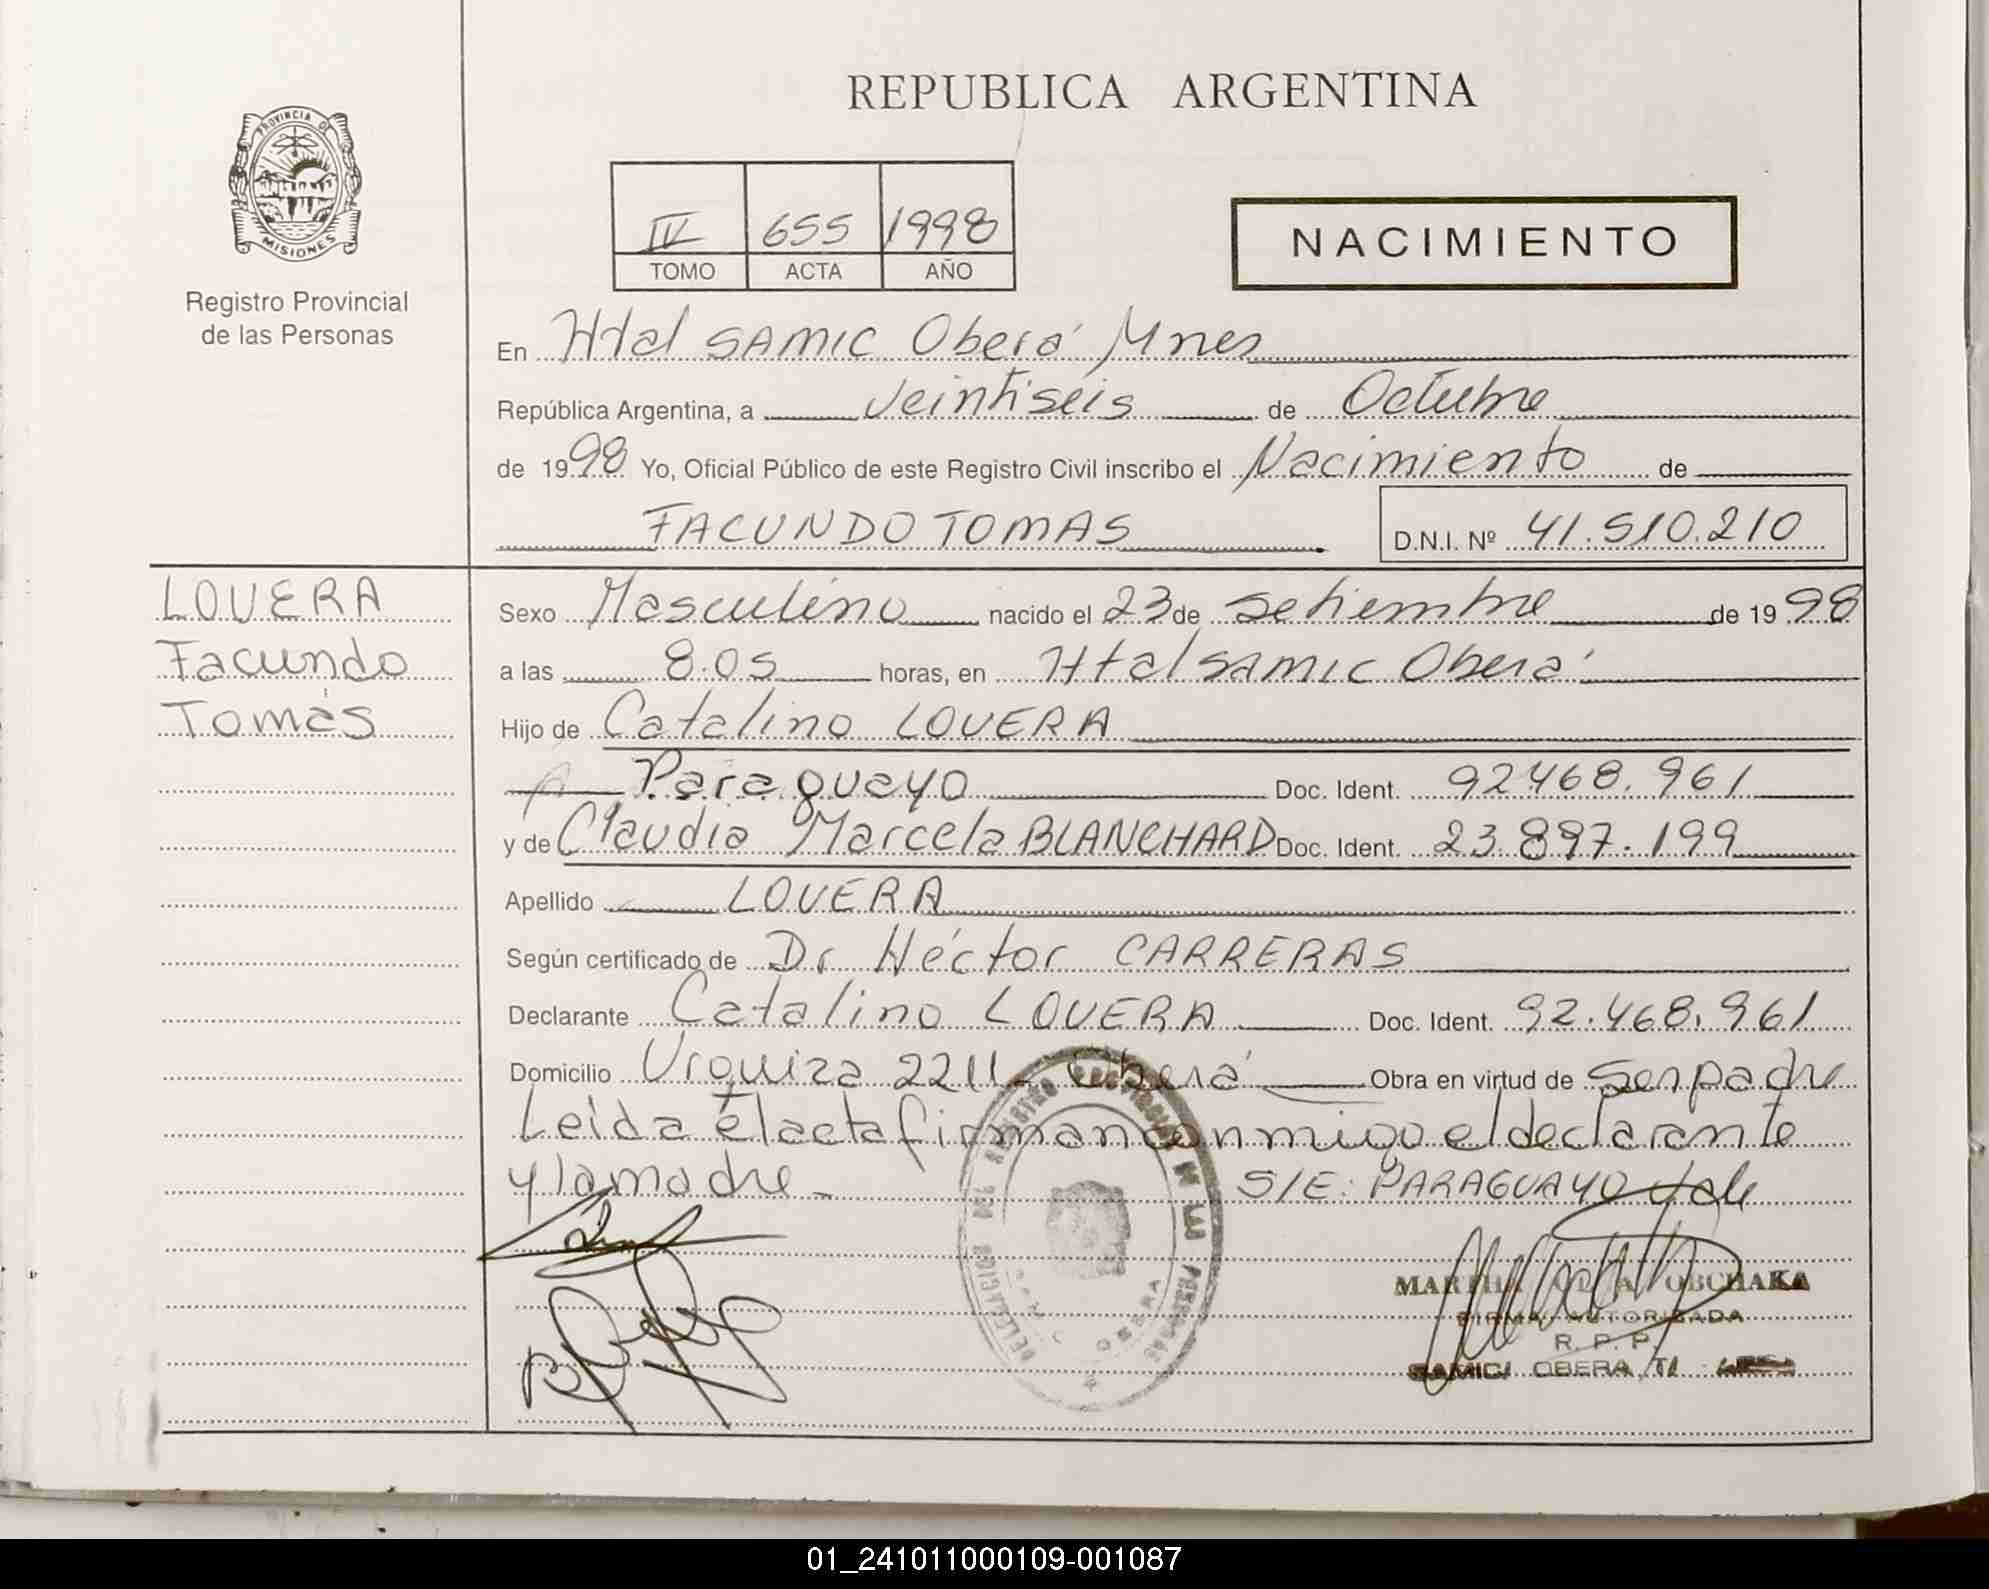 REPUBLICA ARGENTINA
PROVINCIA DE
MISIONES
Registro Provincial
de las Personas
IV 655 1998
TOMO ACTA AÑO
NACIMIENTO
En Htal SAMIC Oberá Mnes
República Argentina, a veintiseis de Octubre
de 1998 Yo, Oficial Público de este Registro Civil inscribo el Nacimiento de
FACUNDO TOMAS D.N.I. Nº 41.510.210
LOVERA
Facundo
Tomás
Sexo Masculino nacido el 23 de Setiembre de 1998
a las 8.05 horas, en Htal SAMIC Oberá
Hijo de Catalino LOVERA
Paraguayo Doc. Ident. 92468.961
y de Claudia Marcela BLANCHARD Doc. Ident. 23.897.199
Apellido LOVERA
Según certificado de Dr Héctor CARRERAS
Declarante Catalino LOVERA Doc. Ident. 92.468.961
Domicilio Urquiza 2211 - Oberá Obra en virtud de ser padre
Leida el acta firman conmigo el declarante
y la madre - S/E: PARAGUAYO Vale
REGISTRO PROVINCIAL DE LAS PERSONAS
DELEGACION
OBERA
MARTHA OBCHAKA
FIRMA AUTORIZADA
R. P. P.
SAMIC OBERA
01_241011000109-001087